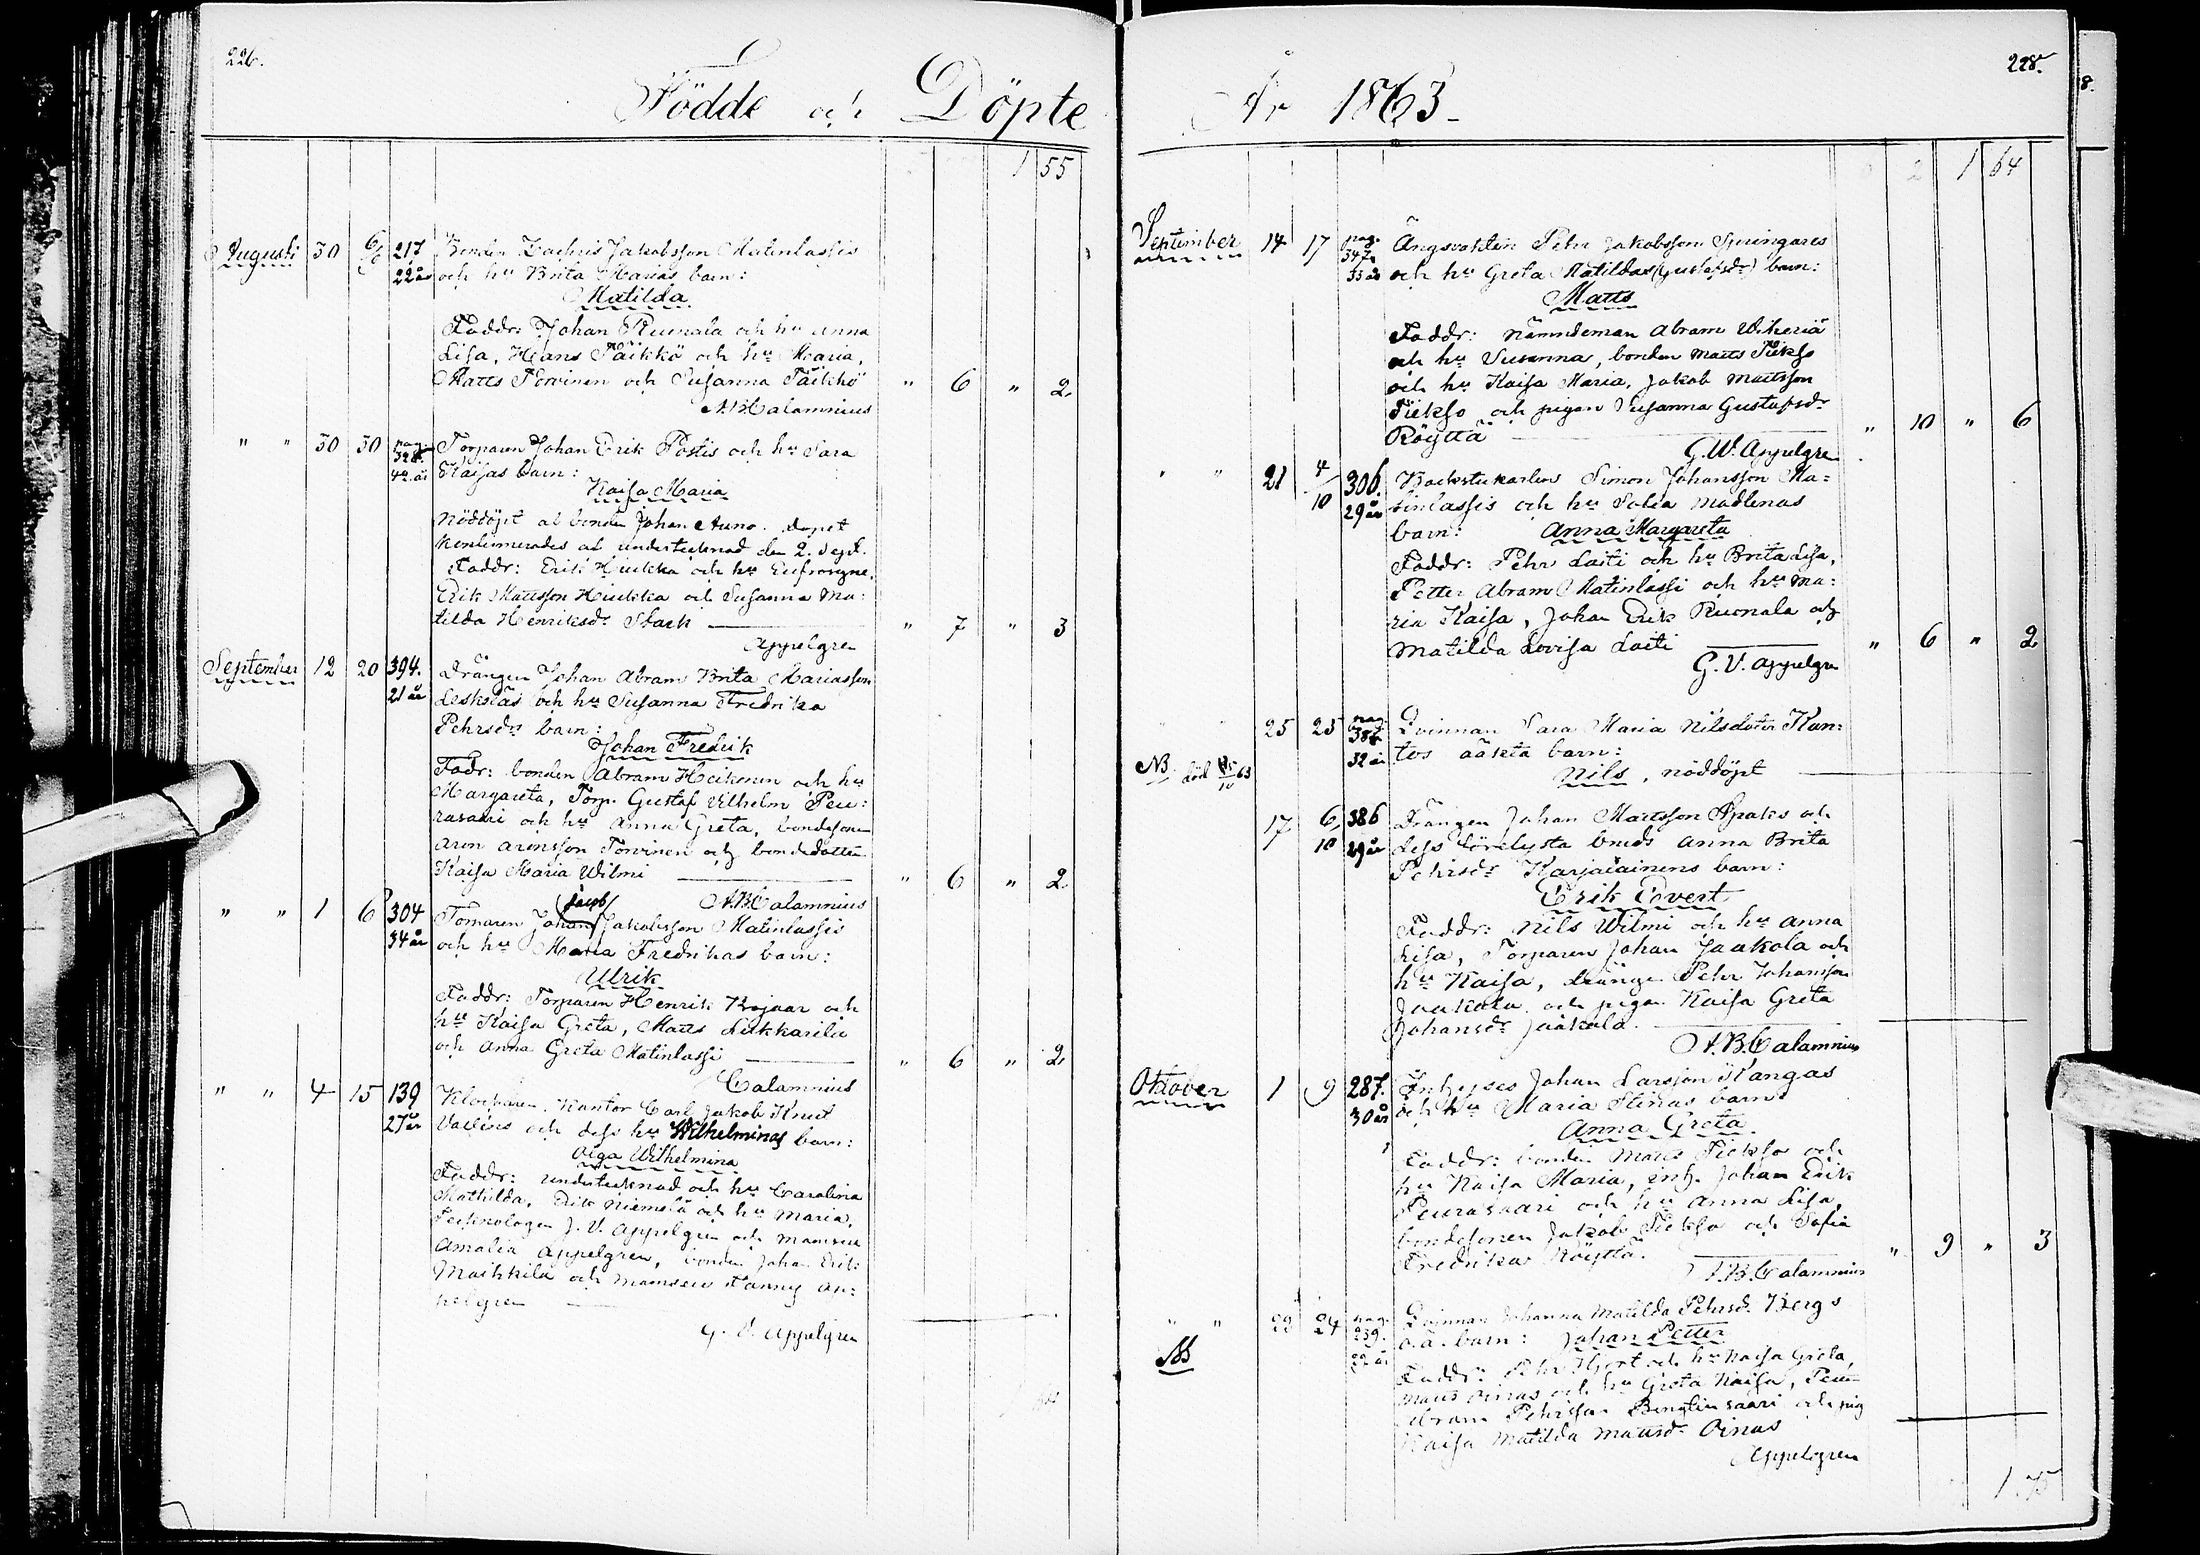 226.
Födde och Döpte
1 55
Augusti 30 6/9 217 Bonden Zachris Jakobsson Matinlassis
22 år och hu Brita Marias barn:
Matilda
Faddr: Johan Ruonala och hu Anna
Lisa, Hans Päikkö och hu Maria,
Matts Torvinen och Susanna Päikkö " 6 " 2
A.B. Calamnius
" " 30 30 pag. 328. Torparen Johan Erik Postis och hu Sara
42 år Kaisas barn:
Kaisa Maria
Nöddöpt af bonden Johan Auno. Dopet
konfirmerades af undertecknad den 2. Sept.
Faddr: Erik Hiukka och hu Eufrosyne,
Erik Mattsson Hiukka och Susanna Ma-
tilda Henriksdr Stark " 7 " 3
Appelgren
September 12 20 394. Drängen Johan Abram Brita Mariasson
21 år Leskeläs och hu Susanna Fredrika
Pehrsdrs barn:
Johan Fredrik
Fadr: bonden Abram Heikinen och hu
Margareta, Torp. Gustaf Vilhelm Peu-
rasaari och hu Anna Greta, bondesonen
Aron Aronsson Torvinen och bondedottern
Kaisa Maria Wilmi " 6 " 2
A.B. Calamnius
" " 1 6 304 Torparen Johan (Jacob) Jakobsson Matinlassis
34 år och hu Maria Fredrikas barn:
Ulrik
Faddr: Torparen Henrik Bojaar och
hu Kaisa Greta, Matts Liikkarila
och Anna Greta Matinlassi " 6 " 2
Calamnius
" " 4 15 139 Klockaren, Kantor Carl Jakob Knut
27 år Valléns och dess hu Wilhelminas barn:
Olga Wilhelmina
Faddr: undertecknad och hu Carolina
Mathilda, Erik Niemelä och hu Maria,
Technologen J. V. Appelgren och Mamsell
Amalia Appelgren, bonden Johan Erik
Maikkila och Mamsell Fanny Ap-
pelgren
G. V. Appelgren
År 1863.
228.
2 1 64
September 14 17 pag. 347. Ängsvakten Pehr Jakobsson Springares
33 år och hu Greta Matildas (Gustafsdr) barn:
Matts
Faddr: Nämndeman Abram Wikeriä
och hu Susanna, bonden Matts Tiekso
och hu Kaisa Maria, Jakob Mattsson
Tiekso och pigan Susanna Gustafsdr
Röyttä " 10 " 6
G.W. Appelgren
" " 21 4/10 306. Backstukarlen Simon Johansson Ma-
29 år tinlassis och hu Sofia Madlenas
barn: Anna Margareta
Faddr: Pehr Laiti och hu Brita Lisa,
Petter Abram Matinlassi och hu Ma-
ria Kaisa, Johan Erik Ruonala och
Matilda Lovisa Laiti " 6 " 2
G. V. Appelgren
" " 25 25 pag. Qvinnan Sara Maria Nilsdotter Kan-
32 år tos oäkta barn:
NB. död 63 Nils, nöddöpt
17 6/10 386 Drängen Johan Mattsson Spaks och
29 år dess förelysta bruds Anna Brita
Pehrsdr Karjalainens barn:
Erik Evert
Faddr: Nils Wilmi och hu Anna
Lisa, Torparen Johan Jaakola och
hu Kaisa, drängen Pehr Johansson
Jaakola och pigan Kaisa Greta
Johansdr Jaakola.
A.B. Calamnius
Oktober 1 9 287. Inhyses Johan Larsson Kangas
30 år och hu Maria Stinas barn:
Anna Greta
Faddr: bonden Matts Tiekso och
hu Kaisa Maria, inh. Johan Erik
Peurasaari och hu Anna Lisa,
bondesonen Jakob Tiekso och Sofia
Fredrika Röyttä. " 9 " 3
A.B. Calamnius
" " 22 24 pag. 239. Qvinnan Johanna Matilda Pehrsdr Bergs
22 år o.ä. barn: Johan Petter
NB Faddr: Pehr Hjort och hu Kaisa Greta,
Matts Oinas och hu Greta Kaisa,
Abram Pehrsson saari och pig
Kaisa Matilda Mattsdr Oinas
Appelgren
1 75